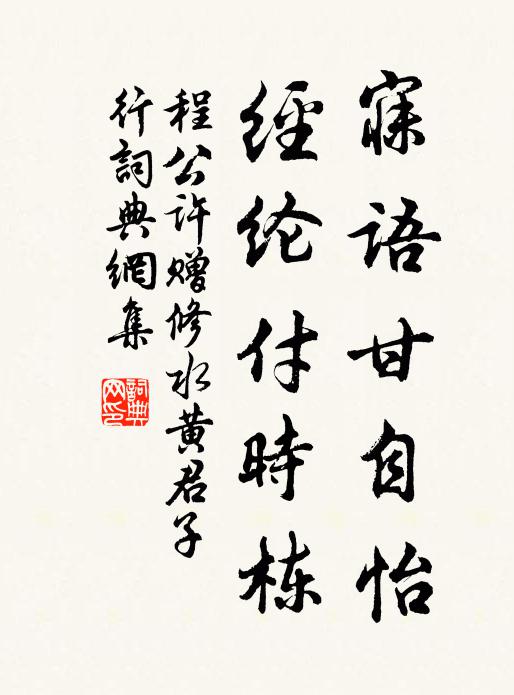 寐语甘自怡
經纶付時栋
程公许赠修水黄君子
行詞典網集
詞典网印